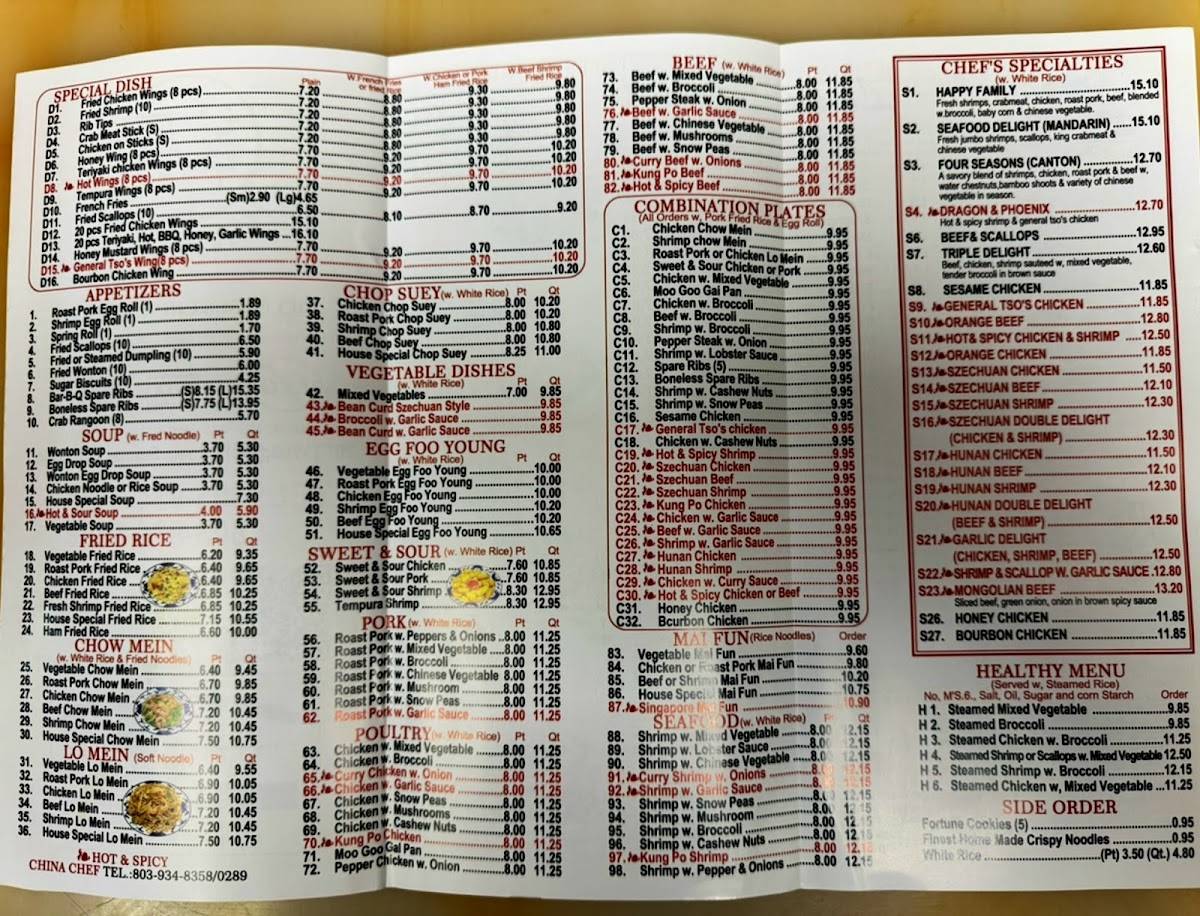 SPECIAL DISH
Plain W.French Fries or fried Rice W.Chicken or Pork Ham Fried Rice W.Beef Shrimp Fried Rice
D1. Fried Chicken Wings (8 pcs) 7.20 8.80 9.30 9.80
D2. Fried Shrimp (10) 7.20 8.80 9.30 9.80
D3. Rib Tips 7.20 8.80 9.30 9.80
D4. Crab Meat Stick (S) 7.20 8.80 9.30 9.80
D5. Chicken on Sticks (S) 7.20 8.80 9.30 9.80
D6. Honey Wing (8 pcs) 7.70 9.20 9.70 10.20
D7. Teriyaki chicken Wings (8 pcs) 7.70 9.20 9.70 10.20
D8. Hot Wings (8 pcs) 7.70 9.20 9.70 10.20
D9. Tempura Wings (8 pcs) 7.70 9.20 9.70 10.20
D10. French Fries (Sm)2.90 (Lg)4.65
D11. Fried Scallops (10) 6.50 8.10 8.70 9.20
D12. 20 pcs Fried Chicken Wings 15.10
D13. 20 pcs Teriyaki, Hot, BBQ, Honey, Garlic Wings 16.10
D14. Honey Mustard Wings (8 pcs) 7.70 9.20 9.70 10.20
D15. General Tso's Wing(8 pcs) 7.70 9.20 9.70 10.20
D16. Bourbon Chicken Wing 7.70 9.20 9.70 10.20
APPETIZERS
1. Roast Pork Egg Roll (1) 1.89
2. Shrimp Egg Roll (1) 1.89
3. Spring Roll (1) 1.70
4. Fried Scallops (10) 6.50
5. Fried or Steamed Dumpling (10) 5.90
6. Fried Wonton (10) 6.00
7. Sugar Biscuits (10) 4.25
8. Bar-B-Q Spare Ribs (S)8.15 (L)15.35
9. Boneless Spare Ribs (S)7.75 (L)13.95
10. Crab Rangoon (8) 5.70
SOUP (w. Fred Noodle) Pt Qt
11. Wonton Soup 3.70 5.30
12. Egg Drop Soup 3.70 5.30
13. Wonton Egg Drop Soup 3.70 5.30
14. Chicken Noodle or Rice Soup 3.70 5.30
15. House Special Soup 7.30
16. Hot & Sour Soup 4.00 5.90
17. Vegetable Soup 3.70 5.30
FRIED RICE Pt Qt
18. Vegetable Fried Rice 6.20 9.35
19. Roast Pork Fried Rice 6.40 9.65
20. Chicken Fried Rice 6.40 9.65
21. Beef Fried Rice 6.85 10.25
22. Fresh Shrimp Fried Rice 6.85 10.25
23. House Special Fried Rice 7.15 10.55
24. Ham Fried Rice 6.60 10.00
CHOW MEIN
(w. White Rice & Fried Noodles) Pt Qt
25. Vegetable Chow Mein 6.40 9.45
26. Roast Pork Chow Mein 6.70 9.85
27. Chicken Chow Mein 6.70 9.85
28. Beef Chow Mein 7.20 10.45
29. Shrimp Chow Mein 7.20 10.45
30. House Special Chow Mein 7.50 10.75
LO MEIN (Soft Noodle) Pt Qt
31. Vegetable Lo Mein 6.40 9.55
32. Roast Pork Lo Mein 6.90 10.05
33. Chicken Lo Mein 6.90 10.05
34. Beef Lo Mein 7.20 10.45
35. Shrimp Lo Mein 7.20 10.45
36. House Special Lo Mein 7.50 10.75
HOT & SPICY
CHINA CHEF TEL.:803-934-8358/0289
CHOP SUEY (w. White Rice) Pt Qt
37. Chicken Chop Suey 8.00 10.20
38. Roast Pork Chop Suey 8.00 10.20
39. Shrimp Chop Suey 8.00 10.80
40. Beef Chop Suey 8.00 10.80
41. House Special Chop Suey 8.25 11.00
VEGETABLE DISHES
(w. White Rice) Pt Qt
42. Mixed Vegetables 7.00 9.85
43. Bean Curd Szechuan Style 9.85
44. Broccoli w. Garlic Sauce 9.85
45. Bean Curd w. Garlic Sauce 9.85
EGG FOO YOUNG
(w. White Rice) Pt Qt
46. Vegetable Egg Foo Young 10.00
47. Roast Pork Egg Foo Young 10.00
48. Chicken Egg Foo Young 10.00
49. Shrimp Egg Foo Young 10.20
50. Beef Egg Foo Young 10.20
51. House Special Egg Foo Young 10.65
SWEET & SOUR (w. White Rice) Pt Qt
52. Sweet & Sour Chicken 7.60 10.85
53. Sweet & Sour Pork 7.60 10.85
54. Sweet & Sour Shrimp 8.30 12.95
55. Tempura Shrimp 8.30 12.95
PORK (w. White Rice) Pt Qt
56. Roast Pork w. Peppers & Onions 8.00 11.25
57. Roast Pork w. Mixed Vegetable 8.00 11.25
58. Roast Pork w. Broccoli 8.00 11.25
59. Roast Pork w. Chinese Vegetable 8.00 11.25
60. Roast Pork w. Mushroom 8.00 11.25
61. Roast Pork w. Snow Peas 8.00 11.25
62. Roast Pork w. Garlic Sauce 8.00 11.25
POULTRY (w. White Rice) Pt Qt
63. Chicken w. Mixed Vegetable 8.00 11.25
64. Chicken w. Broccoli 8.00 11.25
65. Curry Chicken w. Onion 8.00 11.25
66. Chicken w. Garlic Sauce 8.00 11.25
67. Chicken w. Snow Peas 8.00 11.25
68. Chicken w. Mushrooms 8.00 11.25
69. Chicken w. Cashew Nuts 8.00 11.25
70. Kung Po Chicken 8.00 11.25
71. Moo Goo Gai Pan 8.00 11.25
72. Pepper Chicken w. Onion 8.00 11.25
BEEF (w. White Rice) Pt Qt
73. Beef w. Mixed Vegetable 8.00 11.85
74. Beef w. Broccoli 8.00 11.85
75. Pepper Steak w. Onion 8.00 11.85
76. Beef w. Garlic Sauce 8.00 11.85
77. Beef w. Chinese Vegetable 8.00 11.85
78. Beef w. Mushrooms 8.00 11.85
79. Beef w. Snow Peas 8.00 11.85
80. Curry Beef w. Onions 8.00 11.85
81. Kung Po Beef 8.00 11.85
82. Hot & Spicy Beef 8.00 11.85
COMBINATION PLATES
(All Orders w, Pork Fried Rice & Egg Roll)
C1. Chicken Chow Mein 9.95
C2. Shrimp chow Mein 9.95
C3. Roast Pork or Chicken Lo Mein 9.95
C4. Sweet & Sour Chicken or Pork 9.95
C5. Chicken w. Mixed Vegetable 9.95
C6. Moo Goo Gai Pan 9.95
C7. Chicken w. Broccoli 9.95
C8. Beef w. Broccoli 9.95
C9. Shrimp w. Broccoli 9.95
C10. Pepper Steak w. Onion 9.95
C11. Shrimp w. Lobster Sauce 9.95
C12. Spare Ribs (5) 9.95
C13. Boneless Spare Ribs 9.95
C14. Shrimp w. Cashew Nuts 9.95
C15. Shrimp w. Snow Peas 9.95
C16. Sesame Chicken 9.95
C17. General Tso's chicken 9.95
C18. Chicken w. Cashew Nuts 9.95
C19. Hot & Spicy Shrimp 9.95
C20. Szechuan Chicken 9.95
C21. Szechuan Beef 9.95
C22. Szechuan Shrimp 9.95
C23. Kung Po Chicken 9.95
C24. Chicken w. Garlic Sauce 9.95
C25. Beef w. Garlic Sauce 9.95
C26. Shrimp w. Garlic Sauce 9.95
C27. Hunan Chicken 9.95
C28. Hunan Shrimp 9.95
C29. Chicken w. Curry Sauce 9.95
C30. Hot & Spicy Chicken or Beef 9.95
C31. Honey Chicken 9.95
C32. Bcurbon Chicken 9.95
MAI FUN (Rice Noodles) Order
83. Vegetable Mai Fun 9.60
84. Chicken or Roast Pork Mai Fun 9.80
85. Beef or Shrimp Mai Fun 10.20
86. House Special Mai Fun 10.75
87. Singapore Mai Fun 10.90
SEAFOOD (w. White Rice) Pt Qt
88. Shrimp w. Mixed Vegetable 8.00 12.15
89. Shrimp w. Lobster Sauce 8.00 12.15
90. Shrimp w. Chinese Vegetable 8.00 12.15
91. Curry Shrimp w. Onions 8.00 12.15
92. Shrimp w. Garlic Sauce 8.00 12.15
93. Shrimp w. Snow Peas 8.00 12.15
94. Shrimp w. Mushroom 8.00 12.15
95. Shrimp w. Broccoli 8.00 12.15
96. Shrimp w. Cashew Nuts 8.00 12.15
97. Kung Po Shrimp 8.00 12.15
98. Shrimp w. Pepper & Onions 8.00 12.15
CHEF'S SPECIALTIES
(w. White Rice)
S1. HAPPY FAMILY 15.10
Fresh shrimps, crabmeat, chicken, roast pork, beef, blended
w.broccoli, baby corn & chinese vegetable.
S2. SEAFOOD DELIGHT (MANDARIN) 15.10
Fresh jumbo shrimps, scallops, king crabmeat &
chinese vegetable
S3. FOUR SEASONS (CANTON) 12.70
A savory blend of shrimps, chicken, roast pork & beef w,
water chestnuts,bamboo shoots & variety of chinese
vegetable in season.
S4. DRAGON & PHOENIX 12.70
Hot & spicy shrimp & general tso's chicken
S6. BEEF& SCALLOPS 12.95
S7. TRIPLE DELIGHT 12.60
Beef, chicken, shrimp sauteed w, mixed vegetable,
tender broccoli in brown sauce
S8. SESAME CHICKEN 11.85
S9. GENERAL TSO'S CHICKEN 11.85
S10. ORANGE BEEF 12.80
S11. HOT& SPICY CHICKEN & SHRIMP 12.50
S12. ORANGE CHICKEN 11.85
S13. SZECHUAN CHICKEN 11.50
S14. SZECHUAN BEEF 12.10
S15. SZECHUAN SHRIMP 12.30
S16. SZECHUAN DOUBLE DELIGHT
(CHICKEN & SHRIMP) 12.30
S17. HUNAN CHICKEN 11.50
S18. HUNAN BEEF 12.10
S19. HUNAN SHRIMP 12.30
S20. HUNAN DOUBLE DELIGHT
(BEEF & SHRIMP) 12.50
S21. GARLIC DELIGHT
(CHICKEN, SHRIMP, BEEF) 12.50
S22. SHRIMP & SCALLOP W. GARLIC SAUCE 12.80
S23. MONGOLIAN BEEF 13.20
Sliced beef, green onion, onion in brown spicy sauce
S26. HONEY CHICKEN 11.85
S27. BOURBON CHICKEN 11.85
HEALTHY MENU
(Served w, Steamed Rice)
No, M'S.6., Salt, Oil, Sugar and corn Starch Order
H 1. Steamed Mixed Vegetable 9.85
H 2. Steamed Broccoli 9.85
H 3. Steamed Chicken w. Broccoli 11.25
H 4. Steamed Shrimp or Scallops w. Mixed Vegetable 12.50
H 5. Steamed Shrimp w. Broccoli 12.15
H 6. Steamed Chicken w, Mixed Vegetable 11.25
SIDE ORDER
Fortune Cookies (5) 0.95
Finest Home Made Crispy Noodles 0.95
White Rice (Pt) 3.50 (Qt.) 4.80